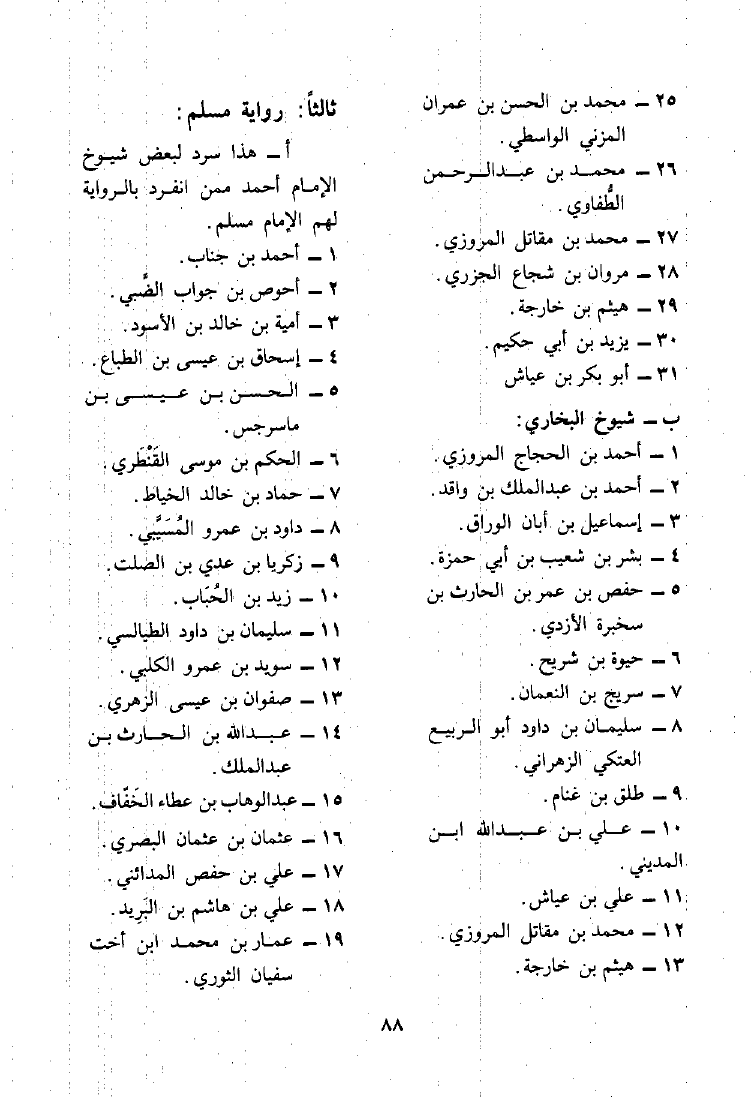 ٢٥ ــ محمد بن الحسن بن عمران
المزني الواسطي.
٢٦ ــ محمد بن عبدالرحمن
الطُّفاوي.
٢٧ ــ محمد بن مقاتل المروزي.
٢٨ ــ مروان بن شجاع الجزري.
٢٩ ــ هيثم بن خارجة.
٣٠ ــ يزيد بن أبي حكيم.
٣١ ــ أبو بكر بن عياش
ب ــ شيوخ البخاري:
١ ــ أحمد بن الحجاج المروزي.
٢ ــ أحمد بن عبدالملك بن واقد.
٣ ــ إسماعيل بن أبان الوراق.
٤ ــ بشر بن شعيب بن أبي حمزة.
٥ ــ حفص بن عمر بن الحارث بن
سخبرة الأزدي.
٦ ــ حيوة بن شريح.
٧ ــ سريج بن النعمان.
٨ ــ سليمان بن داود أبو الربيع
العتكي الزهراني.
٩ ــ طلق بن غنام.
١٠ ــ علي بن عبدالله ابن
المديني.
١١ ــ علي بن عياش.
١٢ ــ محمد بن مقاتل المروزي.
١٣ ــ هيثم بن خارجة.
ثالثاً: رواية مسلم:
أ ــ هذا سرد لبعض شيوخ
الإمام أحمد ممن انفرد بالرواية
لهم الإمام مسلم.
١ ــ أحمد بن جناب.
٢ ــ أحوص بن جواب الضَّبي.
٣ ــ أمية بن خالد بن الأسود.
٤ ــ إسحاق بن عيسى بن الطباع.
٥ ــ الحسن بن عيسى بن
ماسرجس.
٦ ــ الحكم بن موسى القَنْطَري.
٧ ــ حماد بن خالد الخياط.
٨ ــ داود بن عمرو المُسَيَّبي.
٩ ــ زكريا بن عدي بن الصلت.
١٠ ــ زيد بن الحُبَاب.
١١ ــ سليمان بن داود الطيالسي.
١٢ ــ سويد بن عمرو الكلبي.
١٣ ــ صفوان بن عيسى الزهري.
١٤ ــ عبدالله بن الحارث بن
عبدالملك.
١٥ ــ عبدالوهاب بن عطاء الخَفّاف.
١٦ ــ عثمان بن عثمان البصري.
١٧ ــ علي بن حفص المدائني.
١٨ ــ علي بن هاشم بن البَرِيد.
١٩ ــ عمار بن محمد ابن أخت
سفيان الثوري.
٨٨